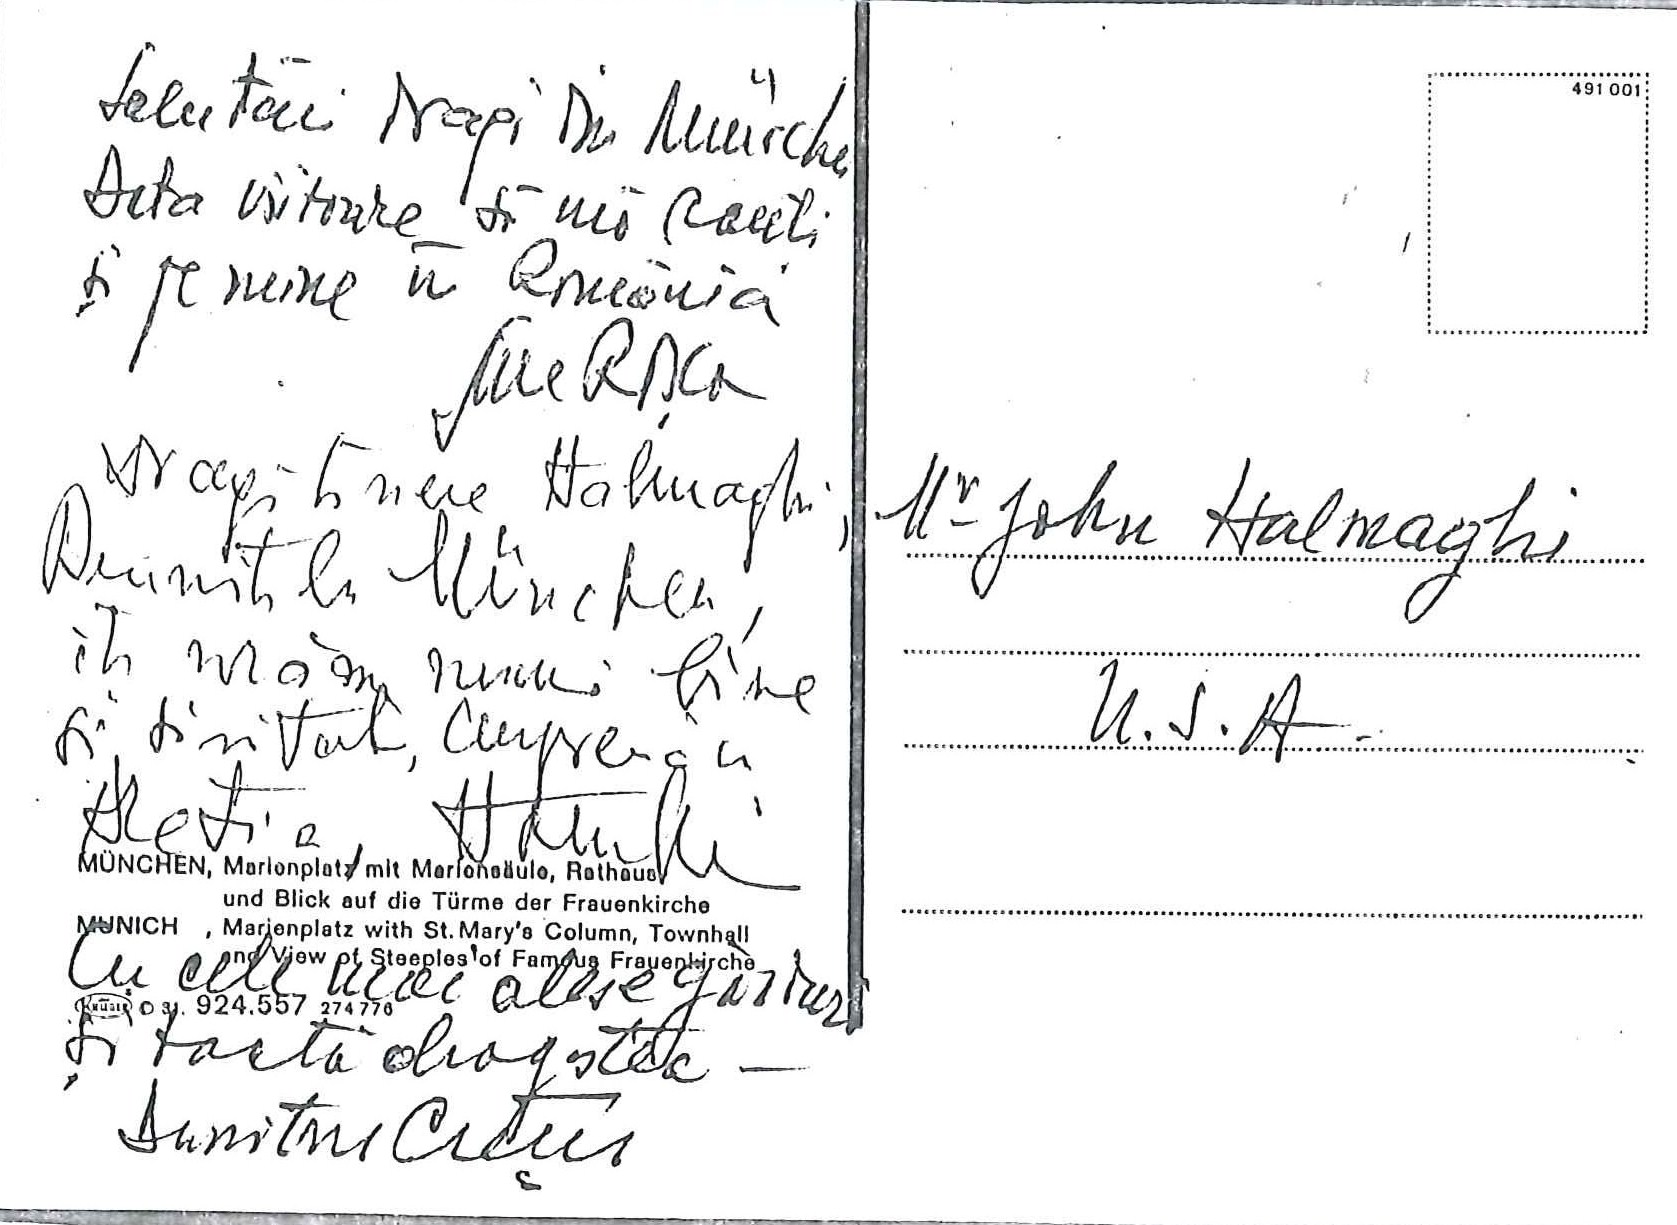 Salutări dragi din München
Data viitoare să mă cauți
și pe mine în România
Ilie Rîșca
Dragă tinere Halmaghi,
Reuniți la München,
îți urăm numai bine
și sănătate,
MÜNCHEN, Marienplatz mit Mariensäule, Rathaus
und Blick auf die Türme der Frauenkirche
MUNICH , Marienplatz with St. Mary's Column, Townhall
and View of Steeples of Famous Frauenkirche
Cu cele mai alese gânduri
Krüger © 31. 924.557 274 776
și toată dragostea —
Dumitru
491 001
Mr John Halmaghi
U.S.A.